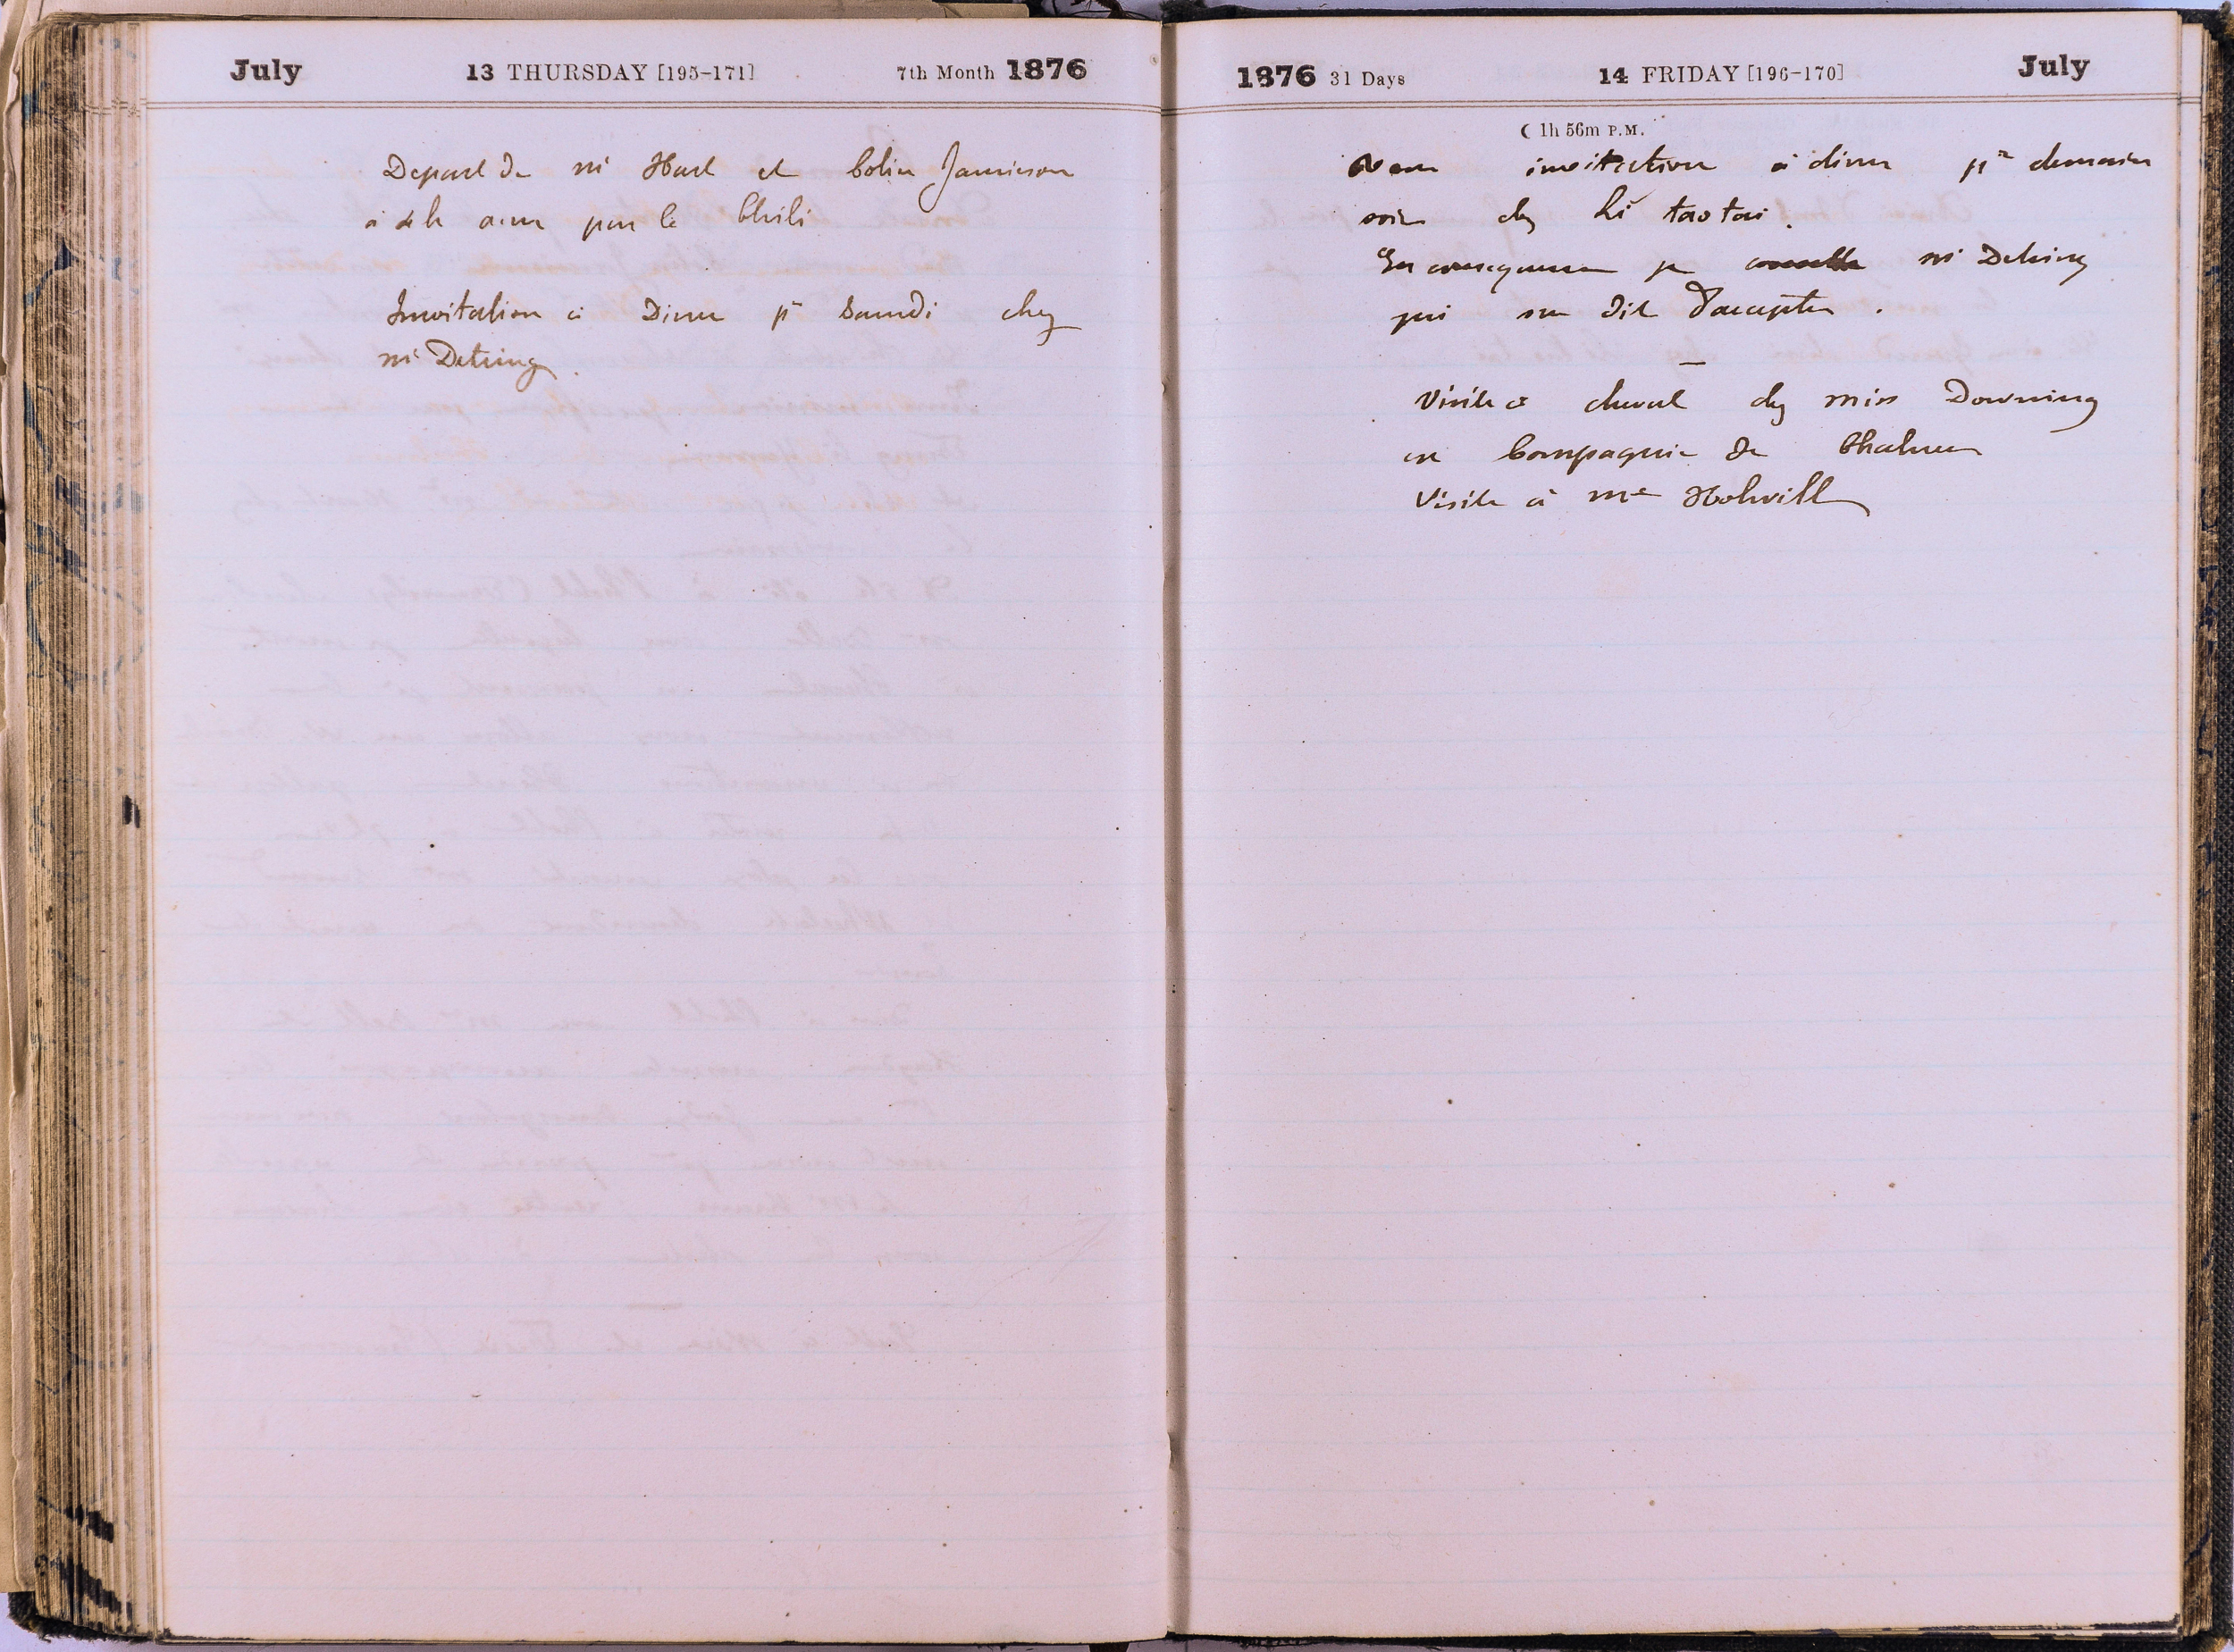 July 13 THURSDAY [195-171] 7th Month 1876
Depart de mr Hart et Colin Jamieson
à 2h a.m par le Chihli
Invitation à Diner pr Samedi chez
mr Detring.
1876 31 Days 14 FRIDAY [196-170] July
☾ 1h 56m P.M.
invitation à diner pr demain
soir chez Li taotai.
En consequence je mr Detring
qui me dit d'accepter.
—
Visite à cheval chez miss Downing
en Compagnie de
Visite à me Holwill